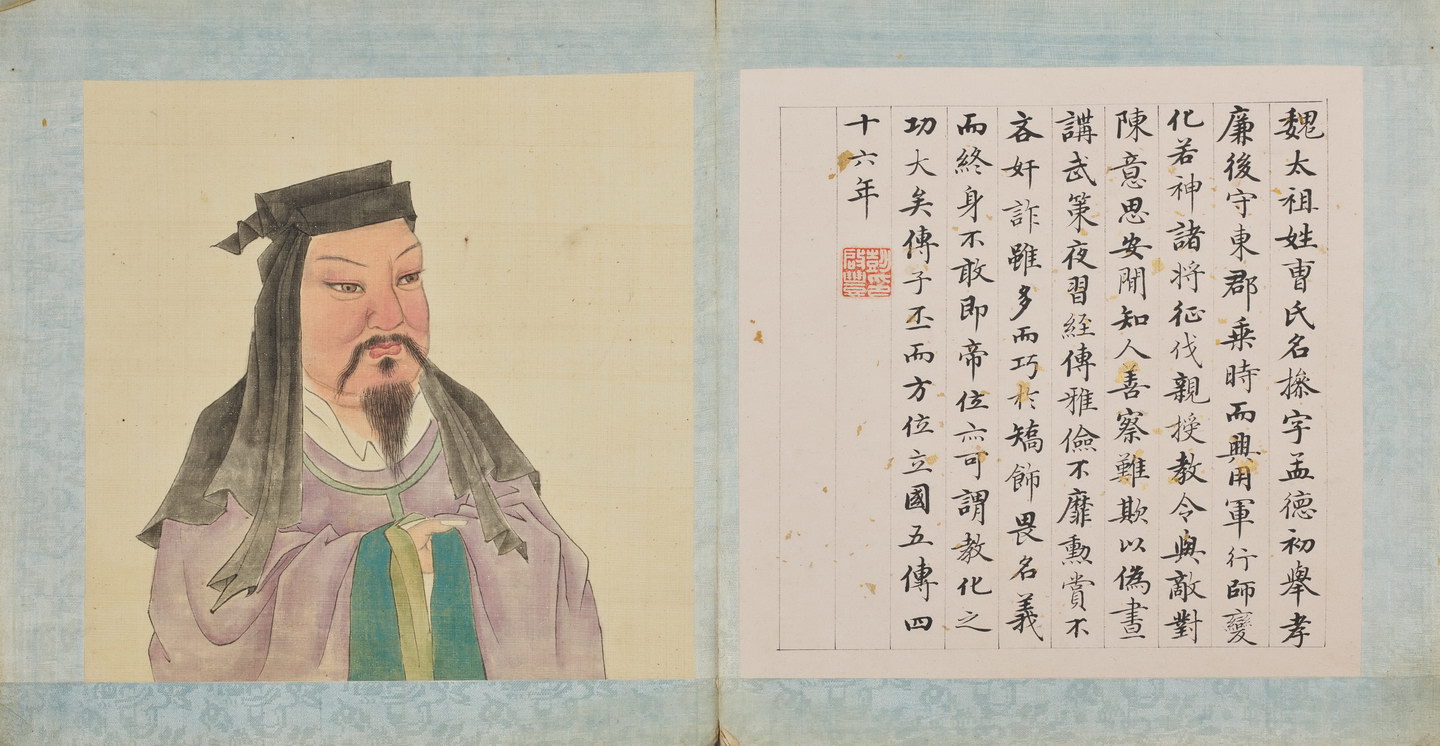 魏太祖姓曹氏名操字孟德初舉孝
廉後守東郡乗時而興用軍行師變
化若神諸将征伐親授教令與敵對
陳意思安閒知人善察難欺以偽晝
講武策夜習経傳雅儉不靡勲賞不
吝奸詐雖多而巧於矯飾畏名義
而終身不敢即帝位亦可謂教化之
功大矣傳子丕而方位立國五傳四
十六年
彭氏啟豐